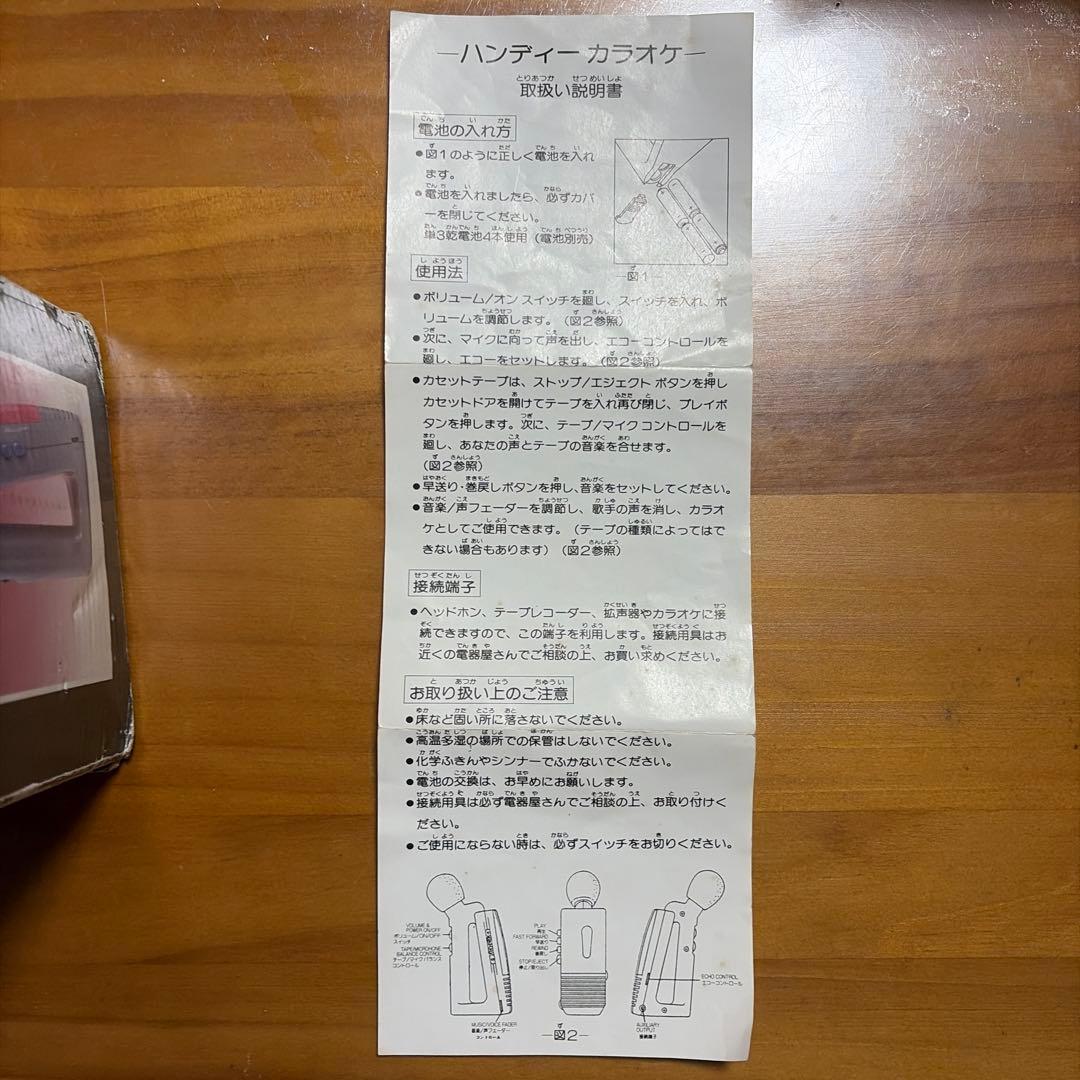 ―ハンディー カラオケ―
取扱い説明書
電池の入れ方
●図1のように正しく電池を入れ
ます。
●電池を入れましたら、必ずカバ
ーを閉じてください。
単3乾電池4本使用（電池別売）
―図1―
使用法
●ボリューム/オン スイッチを廻し、スイッチを入れ、ボ
リュームを調節します。（図2参照）
●次に、マイクに向って声を出し、エコーコントロールを
廻し、エコーをセットします。（図2参照）
●カセットテープは、ストップ/エジェクト ボタンを押し
カセットドアを開けてテープを入れ再び閉じ、プレイボ
タンを押します。次に、テープ/マイク コントロールを
廻し、あなたの声とテープの音楽を合せます。
（図2参照）
●早送り・巻戻しボタンを押し、音楽をセットしてください。
●音楽/声フェーダーを調節し、歌手の声を消し、カラオ
ケとしてご使用できます。（テープの種類によってはで
きない場合もあります）（図2参照）
接続端子
●ヘッドホン、テープレコーダー、拡声器やカラオケに接
続できますので、この端子を利用します。接続用具はお
近くの電器屋さんでご相談の上、お買い求めください。
お取り扱い上のご注意
●床など固い所に落さないでください。
●高温多湿の場所での保管はしないでください。
●化学ふきんやシンナーでふかないでください。
●電池の交換は、お早めにお願いします。
●接続用具は必ず電器屋さんでご相談の上、お取り付けく
ださい。
●ご使用にならない時は、必ずスイッチをお切りください。
VOLUME &
POWER ON/OFF
ボリューム/ON/OFF
スイッチ
TAPE/MICROPHONE
BALANCE CONTROL
テープ/マイクバランス
コントロール
MUSIC/VOICE FADER
音楽/声フェーダー
コントロール
PLAY
再生
FAST FORWARD
早送り
REWIND
巻戻し
STOP/EJECT
停止/取り出し
ECHO CONTROL
エコーコントロール
AUXILIARY
OUTPUT
接続端子
―図2―